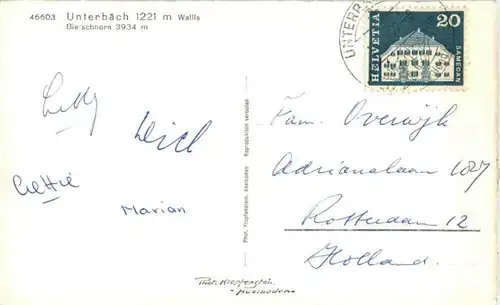 46603 Unterbäch 1221 m Wallis
Bietschhorn 3934 m
HELVETIA
20
SAMEDAN
UNTERB
Wiel
Marian
Fam. Overwijk
Adrianalaan 107
Rotterdam 12
Holland.
Phot. Klopfenstein, Adelboden Reproduktion verboten
Phot. Klopfenstein
Adelboden